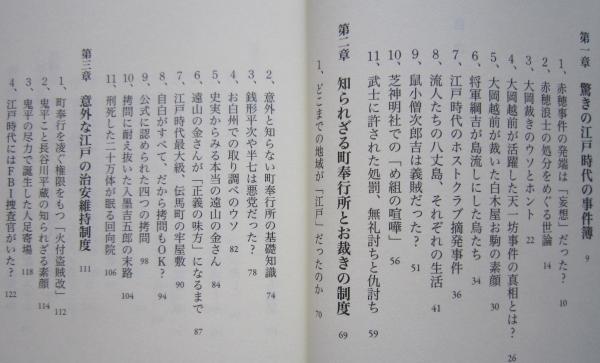 第一章 驚きの江戸時代の事件簿 9
1、赤穂事件の発端は「妄想」だった? 10
2、赤穂浪士の処分をめぐる世論 14
3、大岡裁きのウソとホント 22
4、大岡越前が活躍した天一坊事件の真相とは? 26
5、大岡越前が裁いた白木屋お駒の素顔 30
6、将軍綱吉が島流しにした鳥たち 34
7、江戸時代のホストクラブ摘発事件 36
8、流人たちの八丈島、それぞれの生活 41
9、鼠小僧次郎吉は義賊だった? 51
10、芝神明社での「め組の喧嘩」 56
11、武士に許された処罰、無礼討ちと仇討ち 59
第二章 知られざる町奉行所とお裁きの制度 69
1、どこまでの地域が「江戸」だったのか 70
2、意外と知らない町奉行所の基礎知識 74
3、銭形平次や半七は悪党だった? 78
4、お白州での取り調べのウソ 82
5、史実からみる本当の遠山の金さん 84
6、遠山の金さんが「正義の味方」になるまで 87
7、江戸時代最大級、伝馬町の牢屋敷 90
8、自白がすべて、だから拷問もOK? 94
9、公式に認められた四つの拷問 98
10、拷問に耐え抜いた入墨吉五郎の末路 104
11、刑死した二十万体が眠る回向院 106
第三章 意外な江戸の治安維持制度 111
1、町奉行を凌ぐ権限をもつ「火付盗賊改」 112
2、鬼平こと長谷川平蔵の知られざる素顔 114
3、鬼平の尽力で誕生した人足寄場 118
4、江戸時代にはFBI捜査官がいた? 122